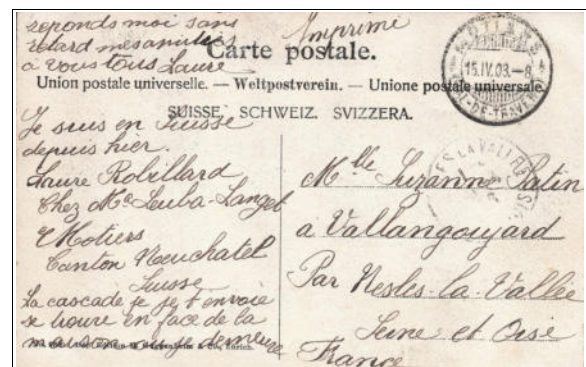 reponds moi sans
retard mes amitiés
à vous tous Laure
Imprimé
Carte postale.
Union postale universelle. — Weltpostverein. — Unione postale universale.
SUISSE. SCHWEIZ. SVIZZERA.
MOTIERS
15.IV.03.–8
VAL-DE-TRAVERS
Je suis en Suisse
depuis hier.
Laure Robillard
Chez Me Leuba-Langel
Motiers
Canton Neuchatel
Suisse
La cascade je t envoie
se trouve en face de la
maison ou je demeure
Mlle Suzanne Patin
à Vallangoujard
Par Nesles-la-Vallée
Seine et Oise
France
NESLES LA VALLÉE